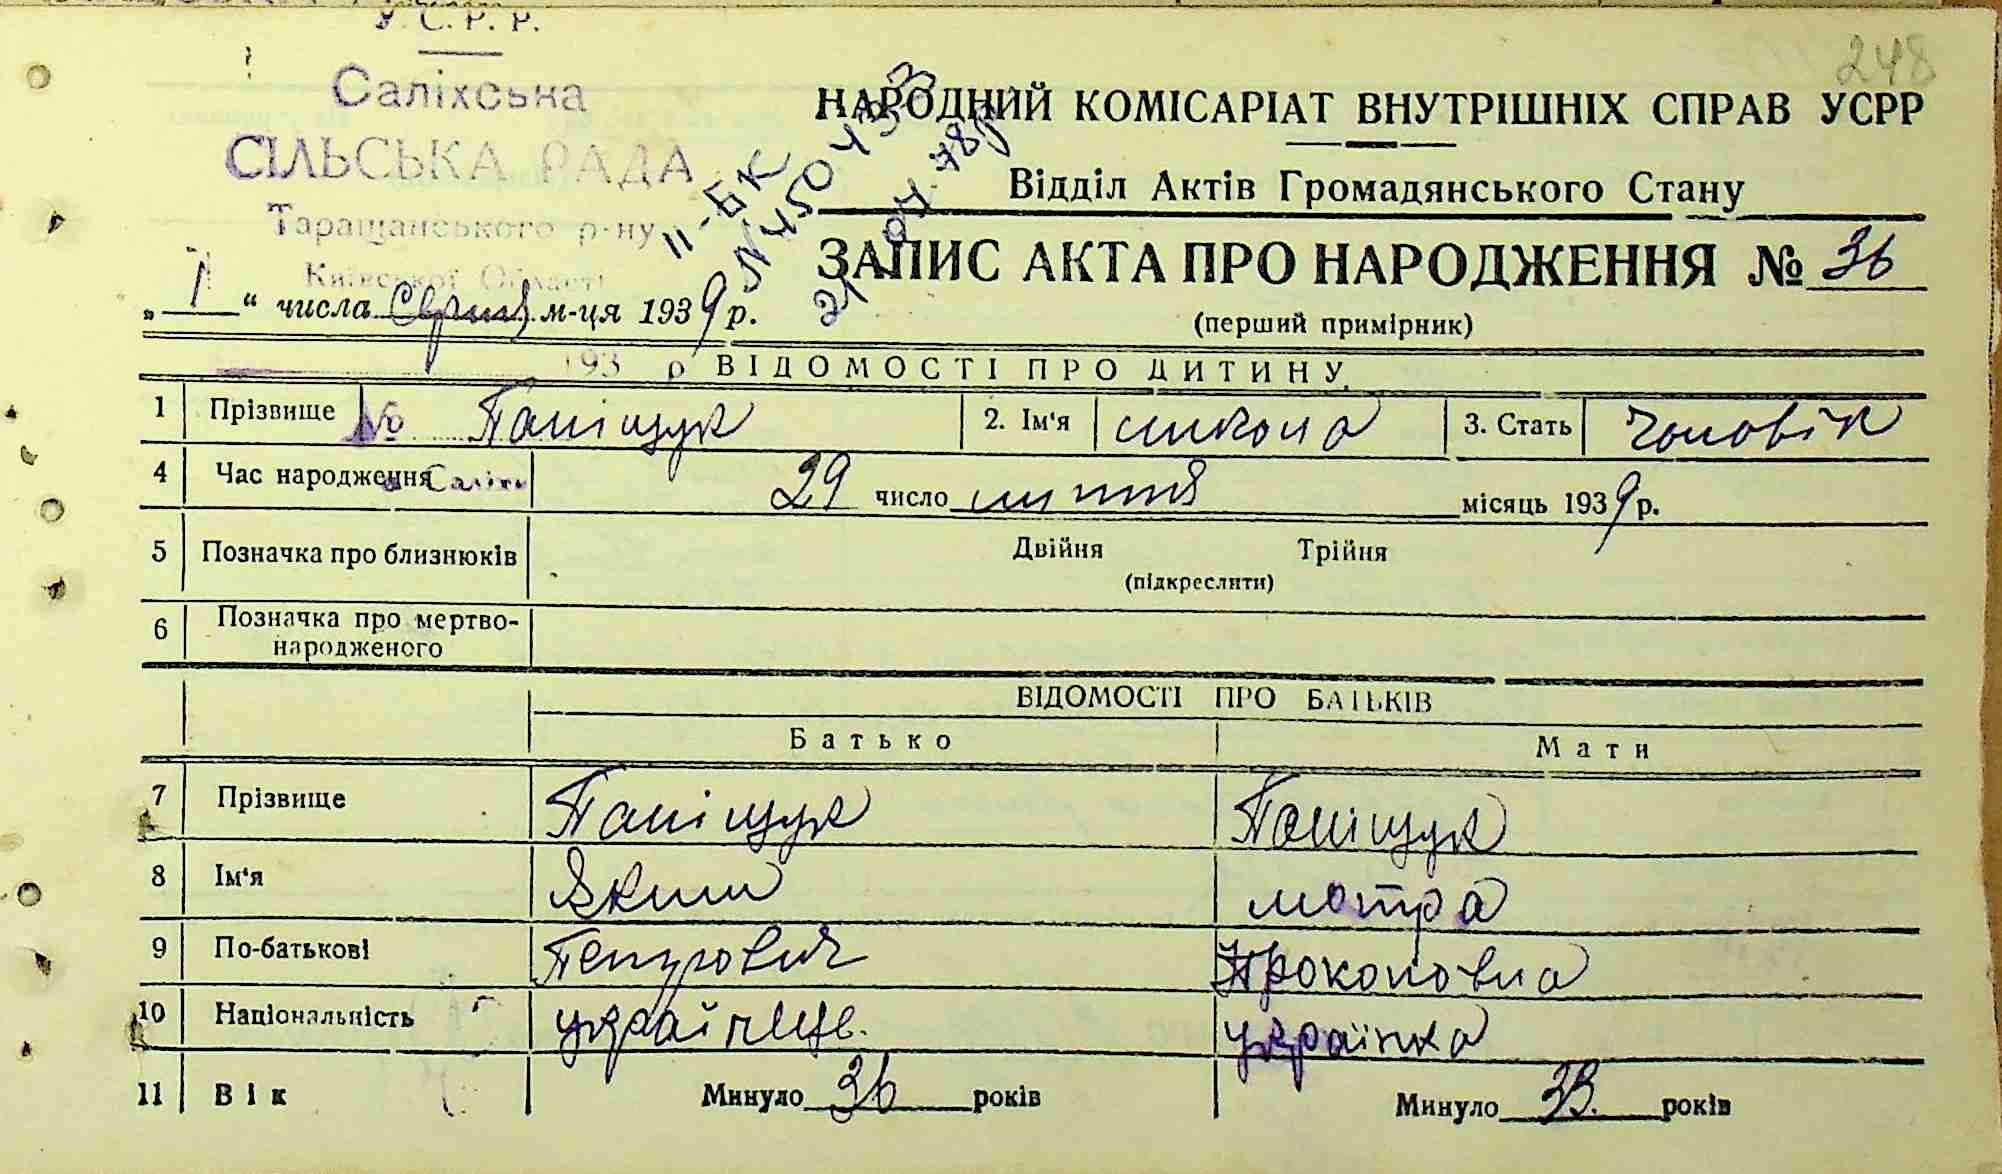 У. С. Р. Р.
248
Саліхська
СІЛЬСЬКА РАДА
Таращанського р-ну
Київської Області
II-БК
№450433
21 04.78р
НАРОДНИЙ КОМІСАРІАТ ВНУТРІШНІХ СПРАВ УСРР
Відділ Актів Громадянського Стану
ЗАПИС АКТА ПРО НАРОДЖЕННЯ № 36
(перший примірник)
„ 1 “ числа Серпня м-ця 1939 р.
193 р
ВІДОМОСТІ ПРО ДИТИНУ
1 Прізвище № Паніщук 2. Ім'я микола 3. Стать Чоловік
4 Час народження Саліхи 29 число липня місяць 1939 р.
5 Позначка про близнюків Двійня Трійня
(підкреслити)
6 Позначка про мертво-
народженого
ВІДОМОСТІ ПРО БАТЬКІВ
Батько Мати
7 Прізвище Паніщук Паніщук
8 Ім'я Яким мотра
9 По-батькові Петрович Прокоповна
10 Національність україінце. українка
11 Вік Минуло 36 років Минуло 33. років